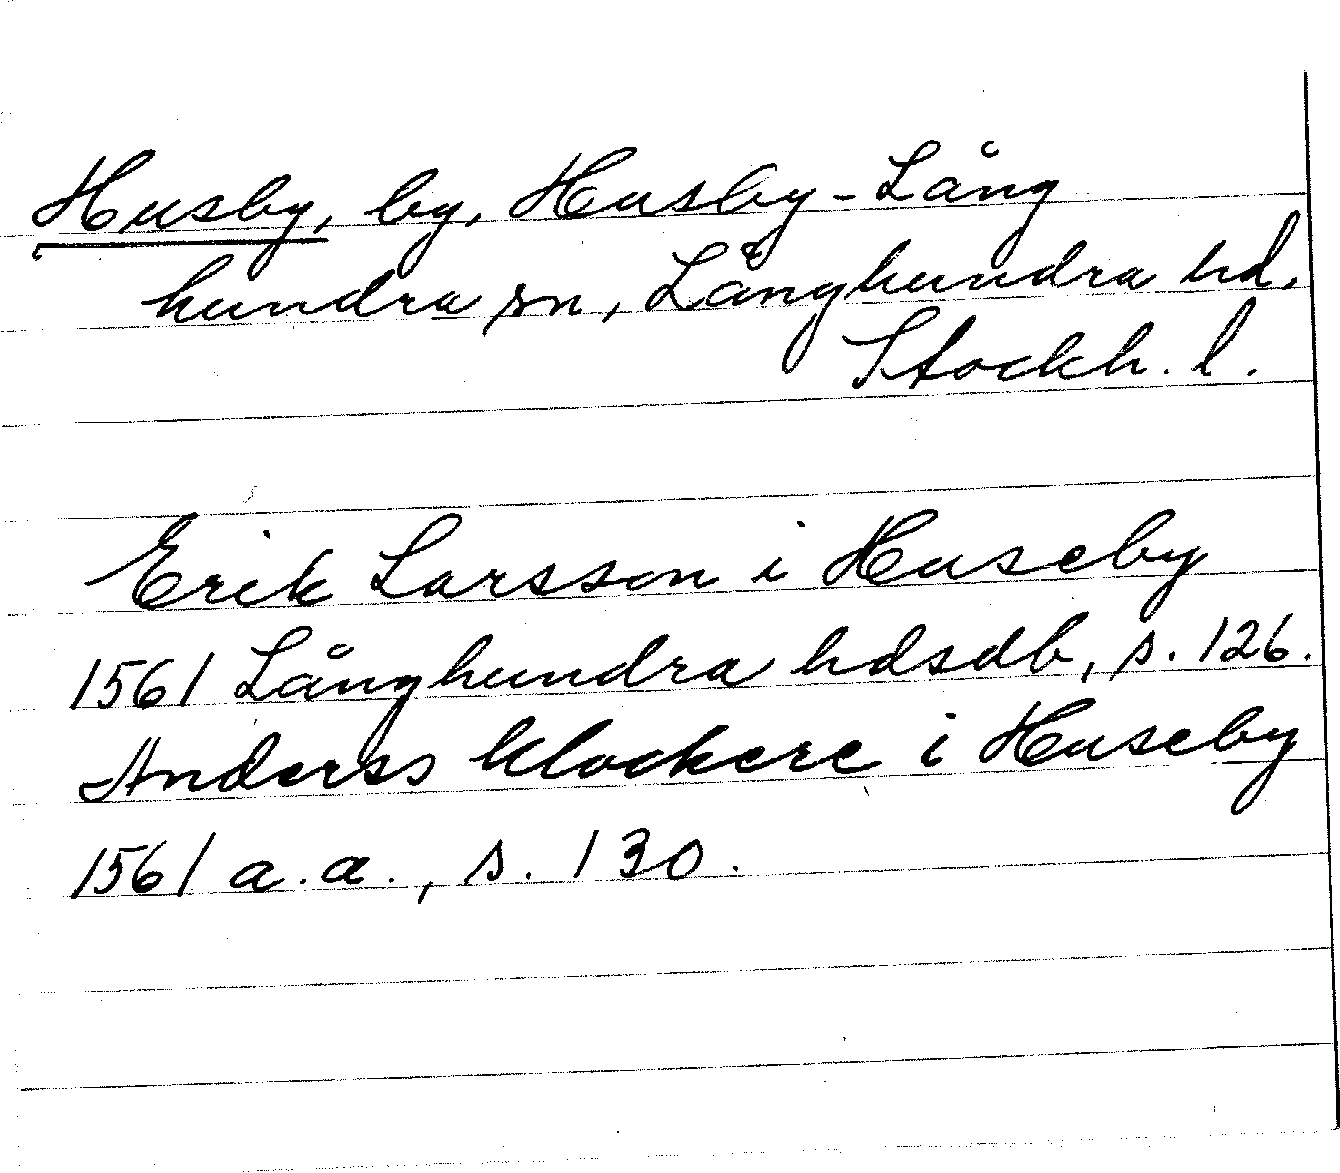 Husby, by, Husby-Lång
hundra sn, Långhundra hd,
Stockh. l.
Erik Larsson i Huseby
1561 Långhundra hdsdb, s. 126.
Anderss klockere i Huseby
1561 a.a., s. 130.